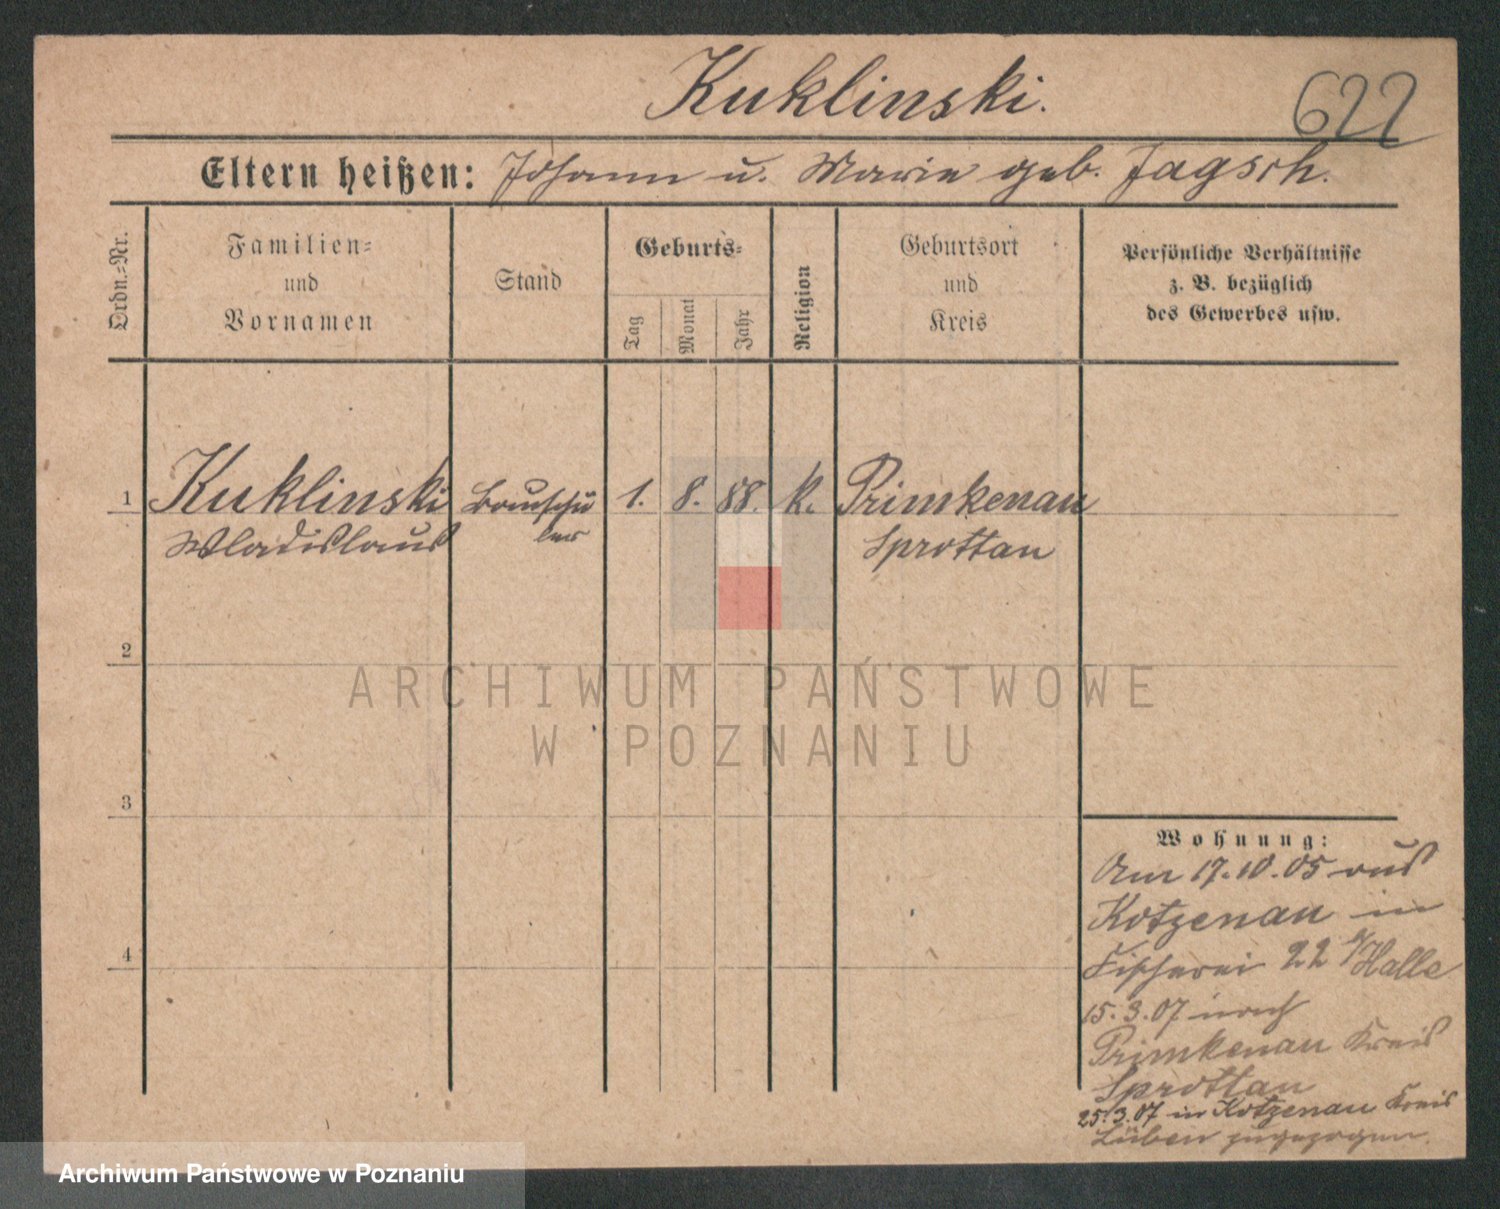 Kuklinski.
622
Eltern heißen: Johann u. Marie geb. Jagsch.
Ordn.=Nr.
Familien=
und
Vornamen
Stand
Geburts=
Tag
Monat
Jahr
Religion
Geburtsort
und
Kreis
Persönliche Verhältnisse
z. B. bezüglich
des Gewerbes usw.
1 Kuklinski Bauschü 1. 8. 88. k. Primkenau
Wladislaus ler Sprottau
2
3
4
ARCHIWUM PAŃSTWOWE
W POZNANIU
Wohnung:
Am 17.10.05 aus
Kotzenau in
Fischerei 22 b/Halle
15.3.07 nach
Primkenau Kreis
Sprottau
25.3.07 in Kotzenau Kreis
Lüben zugezogen.
Archiwum Państwowe w Poznaniu